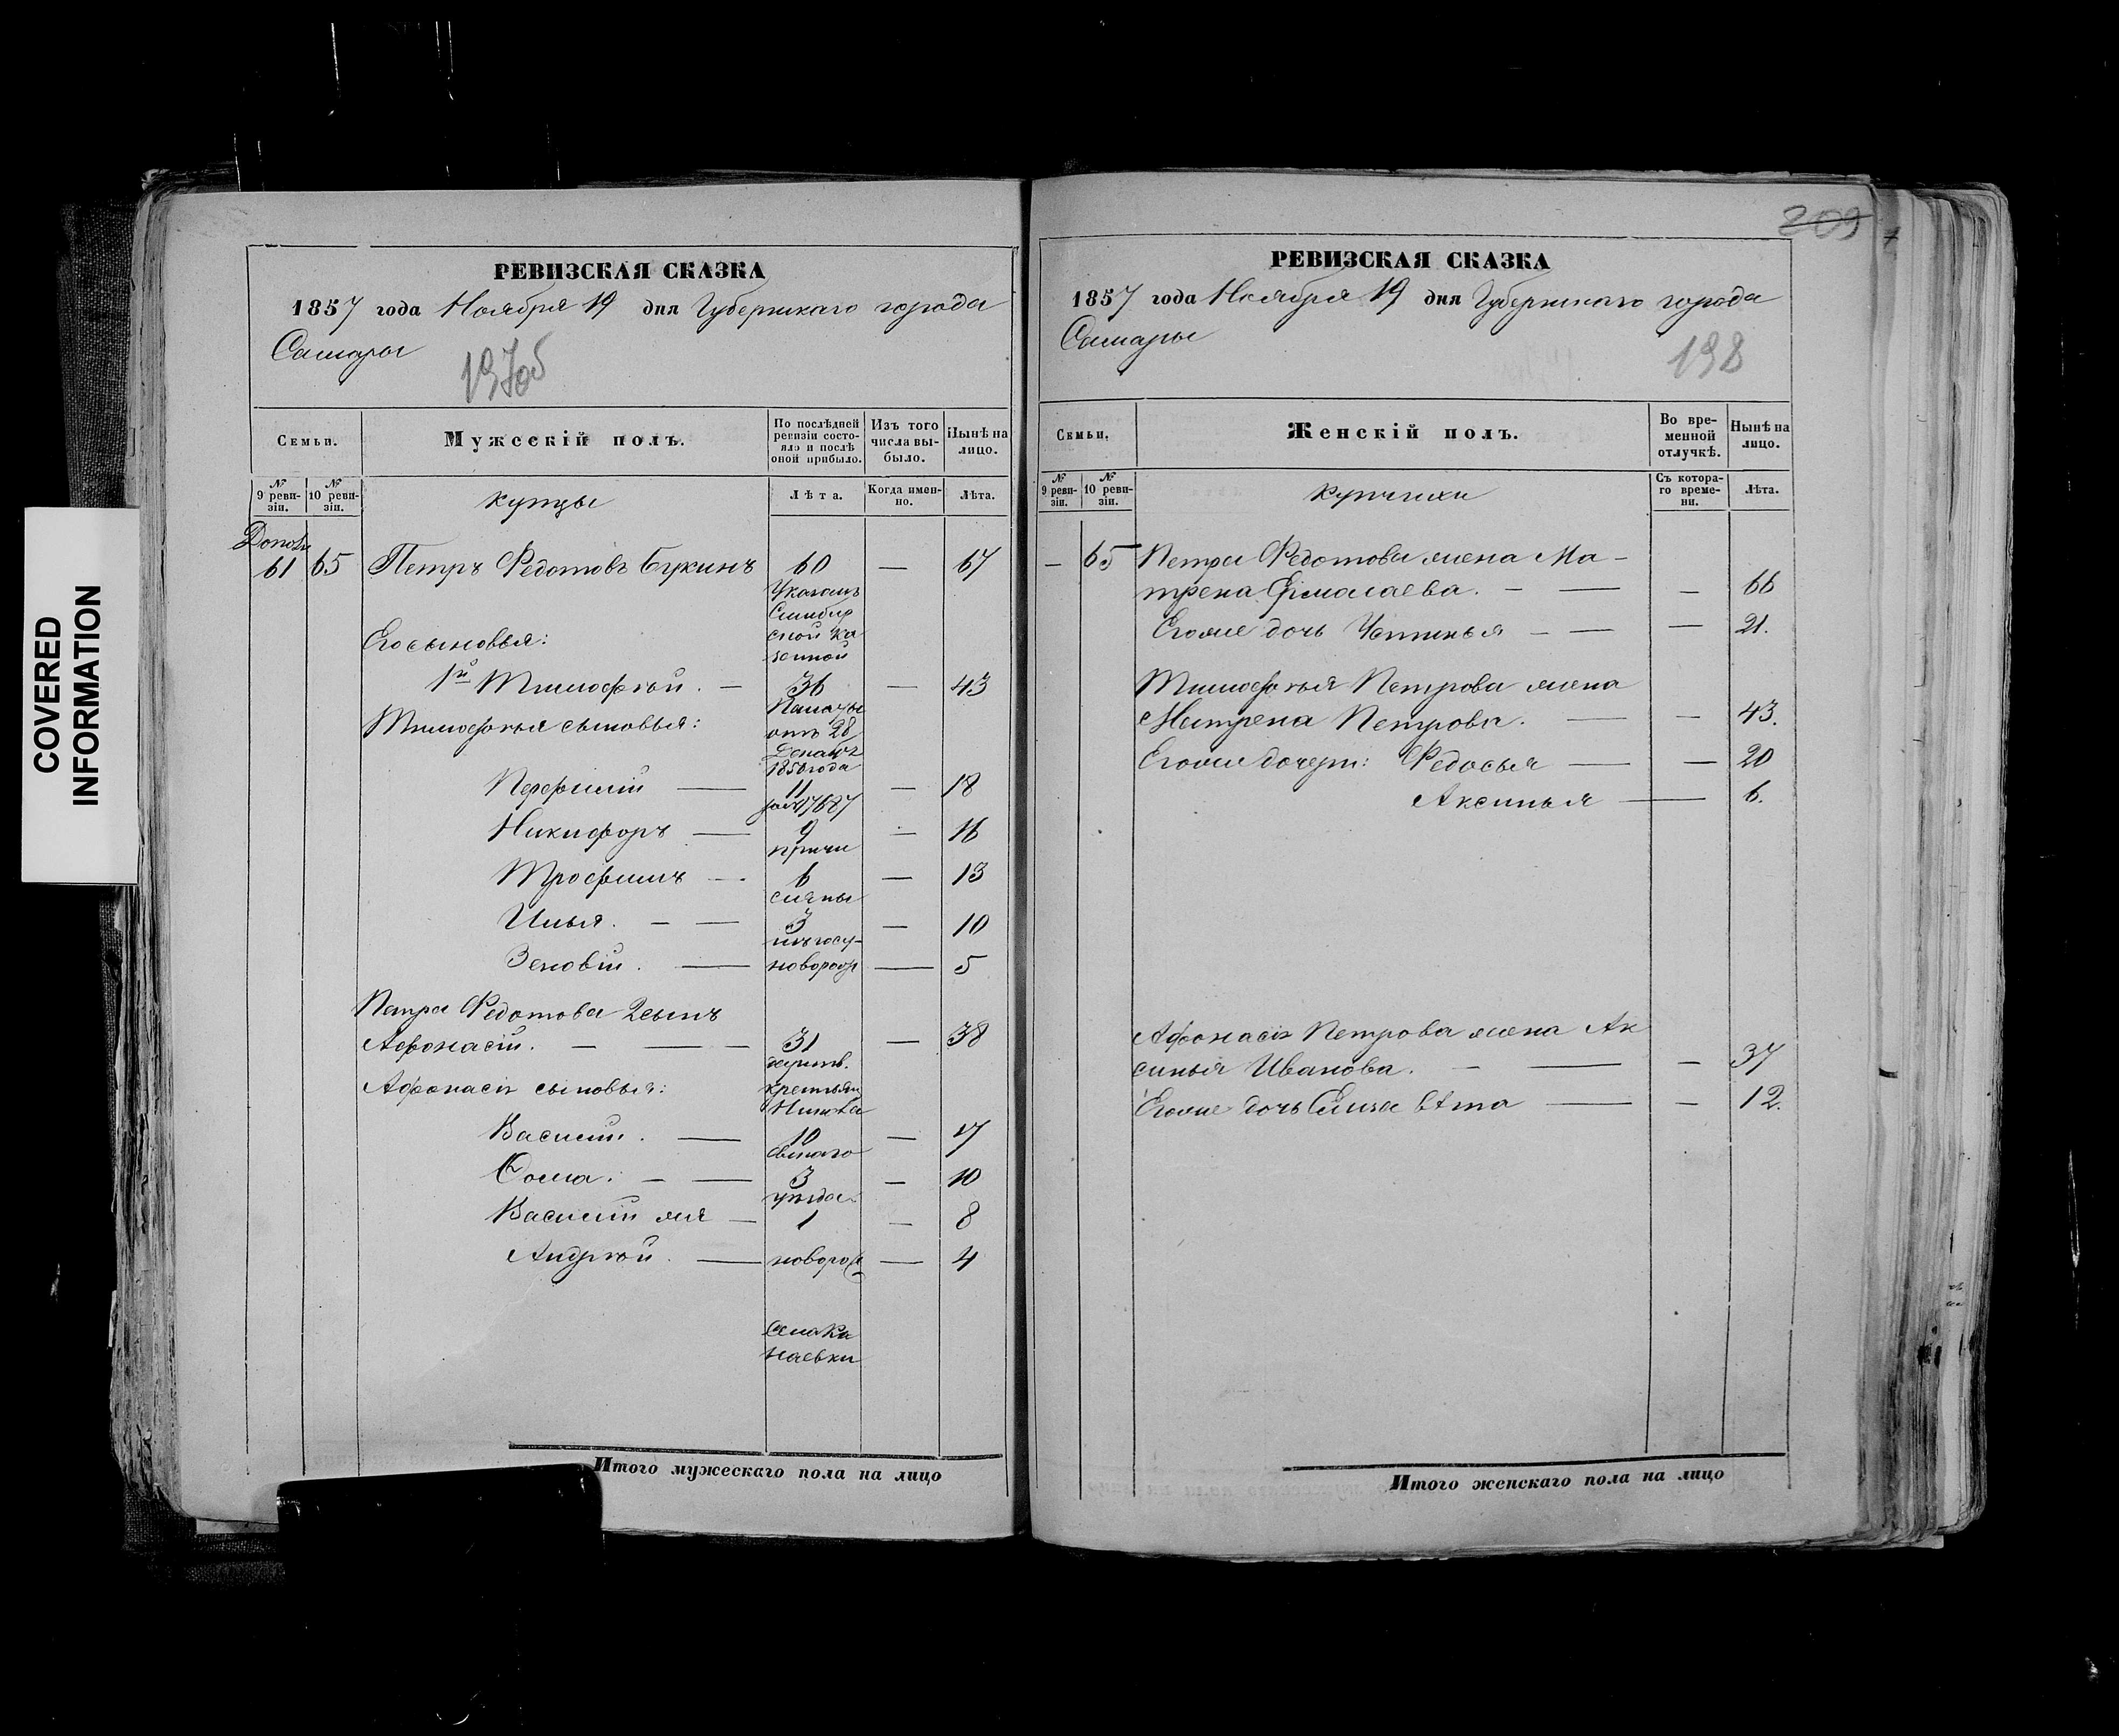 COVERED
INFORMATION
РЕВИЗСКАЯ СКАЗКА
1857 года Ноября 19 дня Губернскаго города
Самары
197об
Семьи.
Мужескій полъ.
По послѣдней ревизіи состояло и послѣ оной прибыло.
Изъ того числа выбыло.
Нынѣ на лицо.
№ 9 ревизіи.
№ 10 ревизіи.
купцы
Лѣта.
Когда именно.
Лѣта.
Допол
61 65 Петръ Федотовъ Букинъ 60 — 67
Указомъ
Симбир
ской ка
зенной
Его сыновья:
1й Тимофей. — 36 — 43
Палаты
Тимофея сыновья:
отъ 28
Декабр
1850 года
Перфилій — 11 — 18
за № 17687
Никифоръ — 9 — 16
причи
Трофимъ — 6 — 13
слены
Илья. — — 3 — 10
изъ госу-
Зеновій. — новорож — 5
Петра Федотова 2 сынъ
Афонасій. — — — 31 — 38
дарств.
Афонасія сыновья:
крестьян
Василій. — 10 — 17
Фома. — — 3 — 10
уезда
Василій же — 1 — 8
Андрей. — новорож — 4
наевки
Итого мужескаго пола на лицо
209
РЕВИЗСКАЯ СКАЗКА
1857 года Ноября 19 дня Губернскаго города
Самары
198
Семьи.
Женскій полъ.
Во временной отлучкѣ.
Нынѣ на лицо.
№ 9 ревизіи.
№ 10 ревизіи.
купчихи
Съ котораго времени.
Лѣта.
— 65 Петра Федотова жена Ма-
трена Ермолаева. — — — 66
Его же дочь Устинья — — — 21.
Тимофея Петрова жена
Матрена Петрова. — — 43.
Его же дочери: Федосья — — 20
Аксинья — 6.
Афонасія Петрова жена Ак
синья Иванова. — — — 37
Его же дочь Елизавѣта — — 12.
Итого женскаго пола на лицо